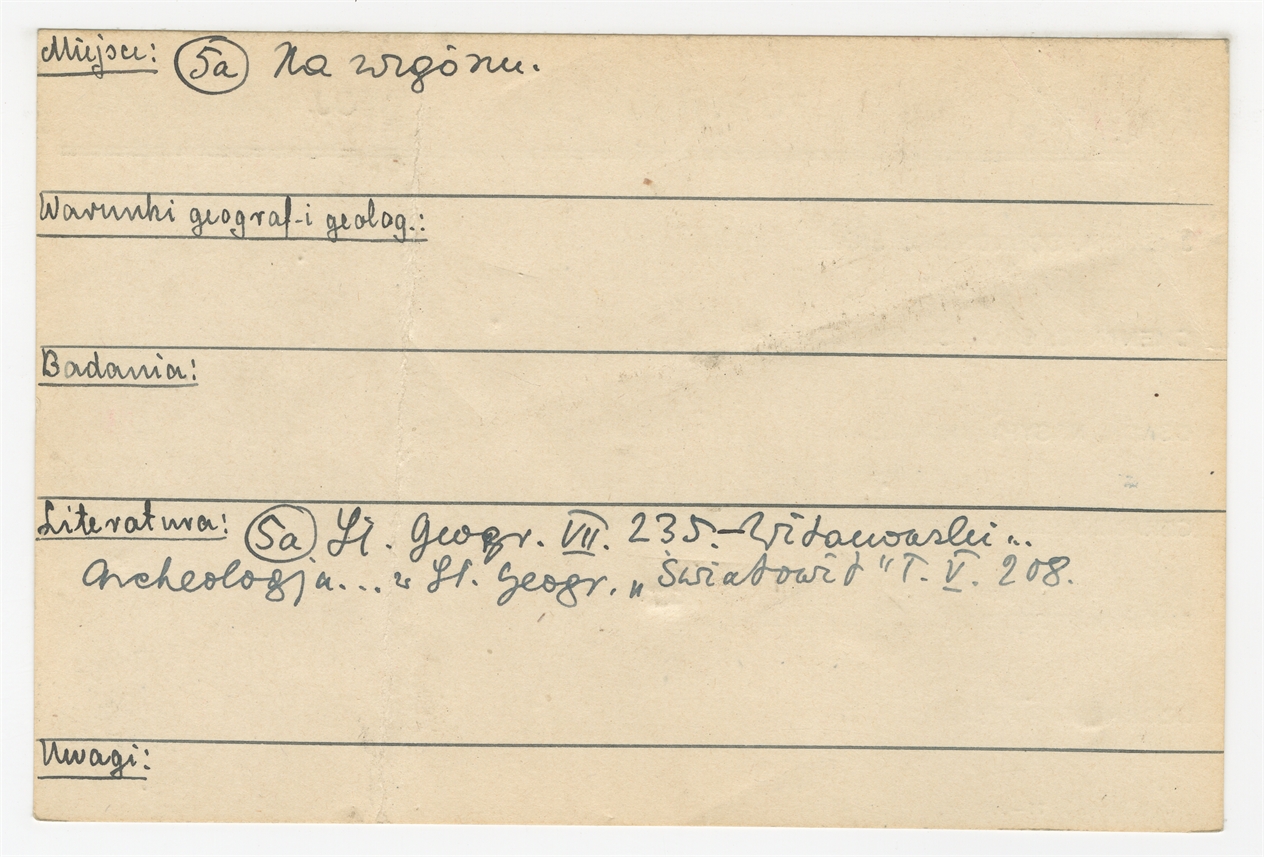 Miejsce: 5a Na wzgórzu.
Warunki geograf-i geolog.:
Badania:
Literatura: 5a Sł. Geogr. VII. 235.-Witanowski..
Archeologja... w Sł. Geogr. „Światowit" T. V. 208.
Uwagi: